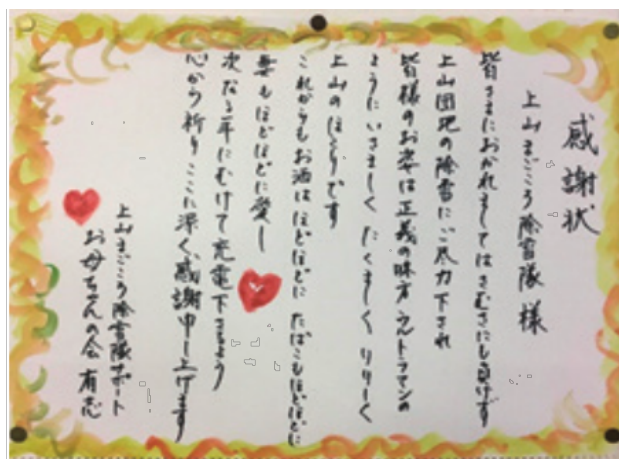 感謝状
上山まごころ除雪隊 様
皆さまにおかれましてはさむさにも負けず
上山団地の除雪にご尽力下され
皆様のお姿は正義の味方 ウルトラマンの
ようにいさましく たくましく りりしく
上山のほこりです
これからもお酒はほどほどに たばこもほどほどに
妻もほどほどに愛し
次なる年にむけて充電下さるよう
心から祈り ここに深く感謝申し上げます
上山まごころ除雪隊サポート
お母ちゃんの会 有志